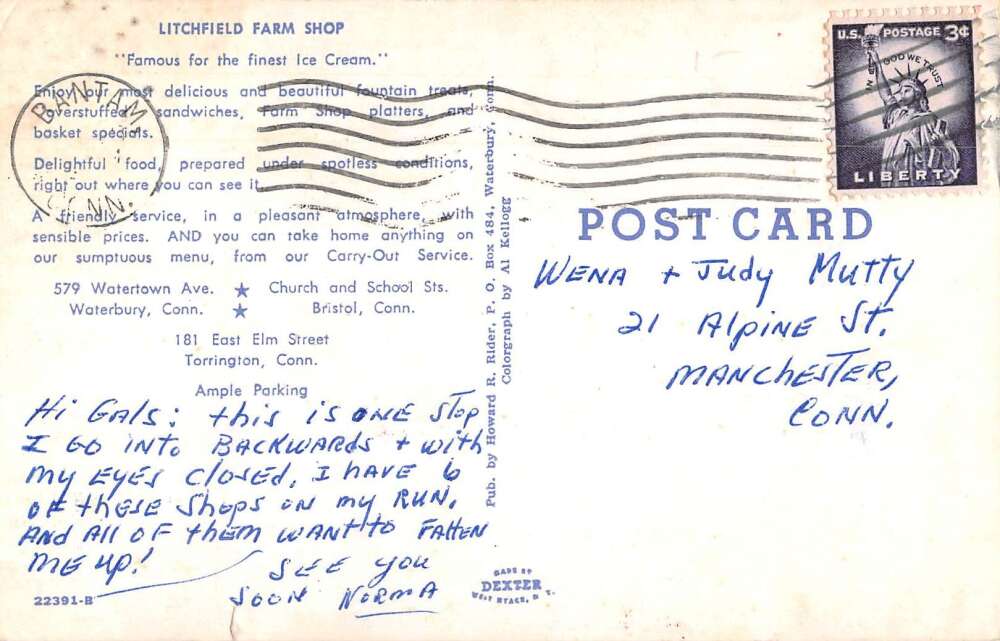 LITCHFIELD FARM SHOP
"Famous for the finest Ice Cream."
Enjoy our most delicious and beautiful fountain treats,
overstuffed sandwiches, Farm Shop platters, and
basket specials.
Delightful food, prepared under spotless conditions,
right out where you can see it.
A friendly service, in a pleasant atmosphere, with
sensible prices. AND you can take home anything on
our sumptuous menu, from our Carry-Out Service.
579 Watertown Ave. ★ Church and School Sts.
Waterbury, Conn. ★ Bristol, Conn.
181 East Elm Street
Torrington, Conn.
Ample Parking
Hi GALS: this is ONE STOP
I GO INTO BACKWARDS + with
MY EYES CLOSED. I HAVE 6
OF THESE SHOPS ON MY RUN.
AND All OF THEM WANT to FATTEN
ME UP!
SEE YOU
SOON NORMA
22391-B
BANTAM
CONN.
Pub. by Howard R. Rider, P. O. Box 484, Waterbury, Conn.
Colorgraph by Al Kellogg
U.S. POSTAGE 3¢
IN GOD WE TRUST
LIBERTY
POST CARD
WENA + Judy Mutty
21 Alpine St.
MANCHESTER,
CONN.
MADE BY
DEXTER
WEST NYACK, N. Y.